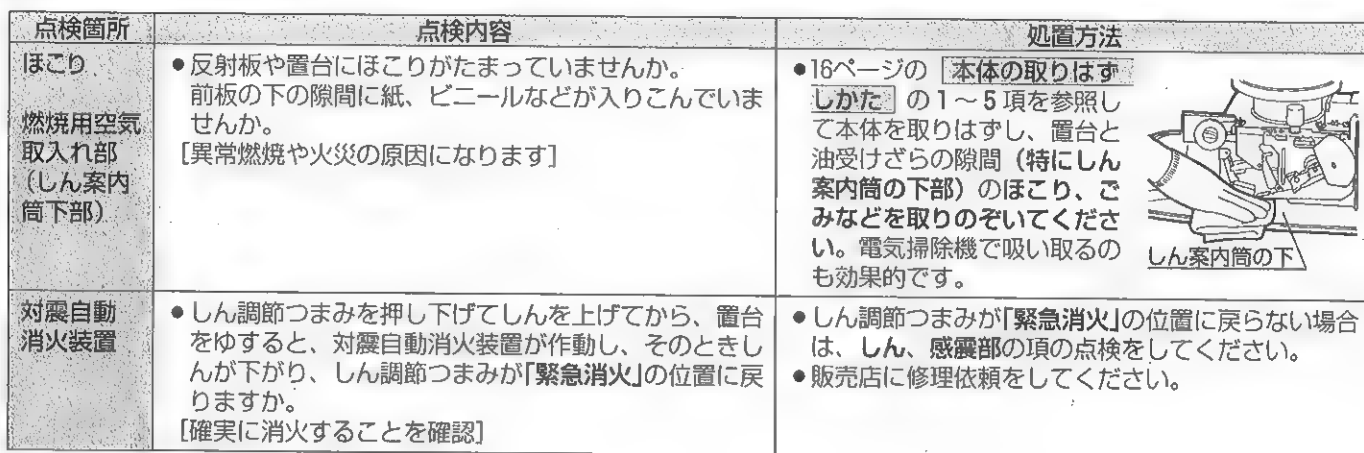 点検箇所
点検内容
処置方法
ほこり
燃焼用空気
取入れ部
(しん案内
筒下部)
●反射板や置台にほこりがたまっていませんか。
前板の下の隙間に紙、ビニールなどが入りこんでいま
せんか。
[異常燃焼や火災の原因になります]
●16ページの 本体の取りはず
しかた の1～5項を参照し
て本体を取りはずし、置台と
油受けざらの隙間(特にしん
案内筒の下部)のほこり、ご
みなどを取りのぞいてくださ
い。電気掃除機で吸い取るの
も効果的です。
しん案内筒の下
対震自動
消火装置
●しん調節つまみを押し下げてしんを上げてから、置台
をゆすると、対震自動消火装置が作動し、そのときし
んが下がり、しん調節つまみが「緊急消火」の位置に戻
りますか。
[確実に消火することを確認]
●しん調節つまみが「緊急消火」の位置に戻らない場合
は、しん、感震部の項の点検をしてください。
●販売店に修理依頼をしてください。